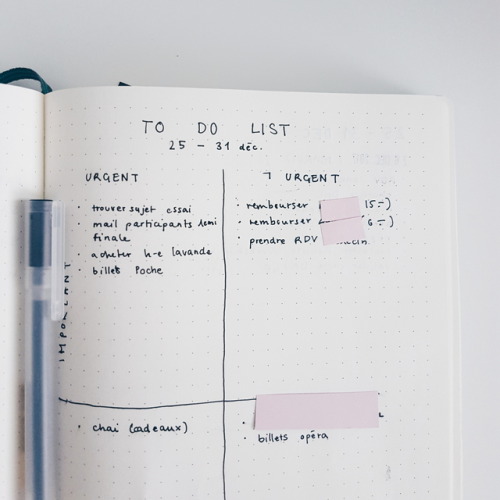 TO DO LIST
25 - 31 déc.
URGENT
• trouver sujet essai
• mail participants demi
finale
• acheter h-e lavande
• billet Poche
IMPORTANT
• chai (cadeaux)
¬ URGENT
• rembourser 15.-)
• rembourser 6.-)
• prendre RDV
• billets opéra